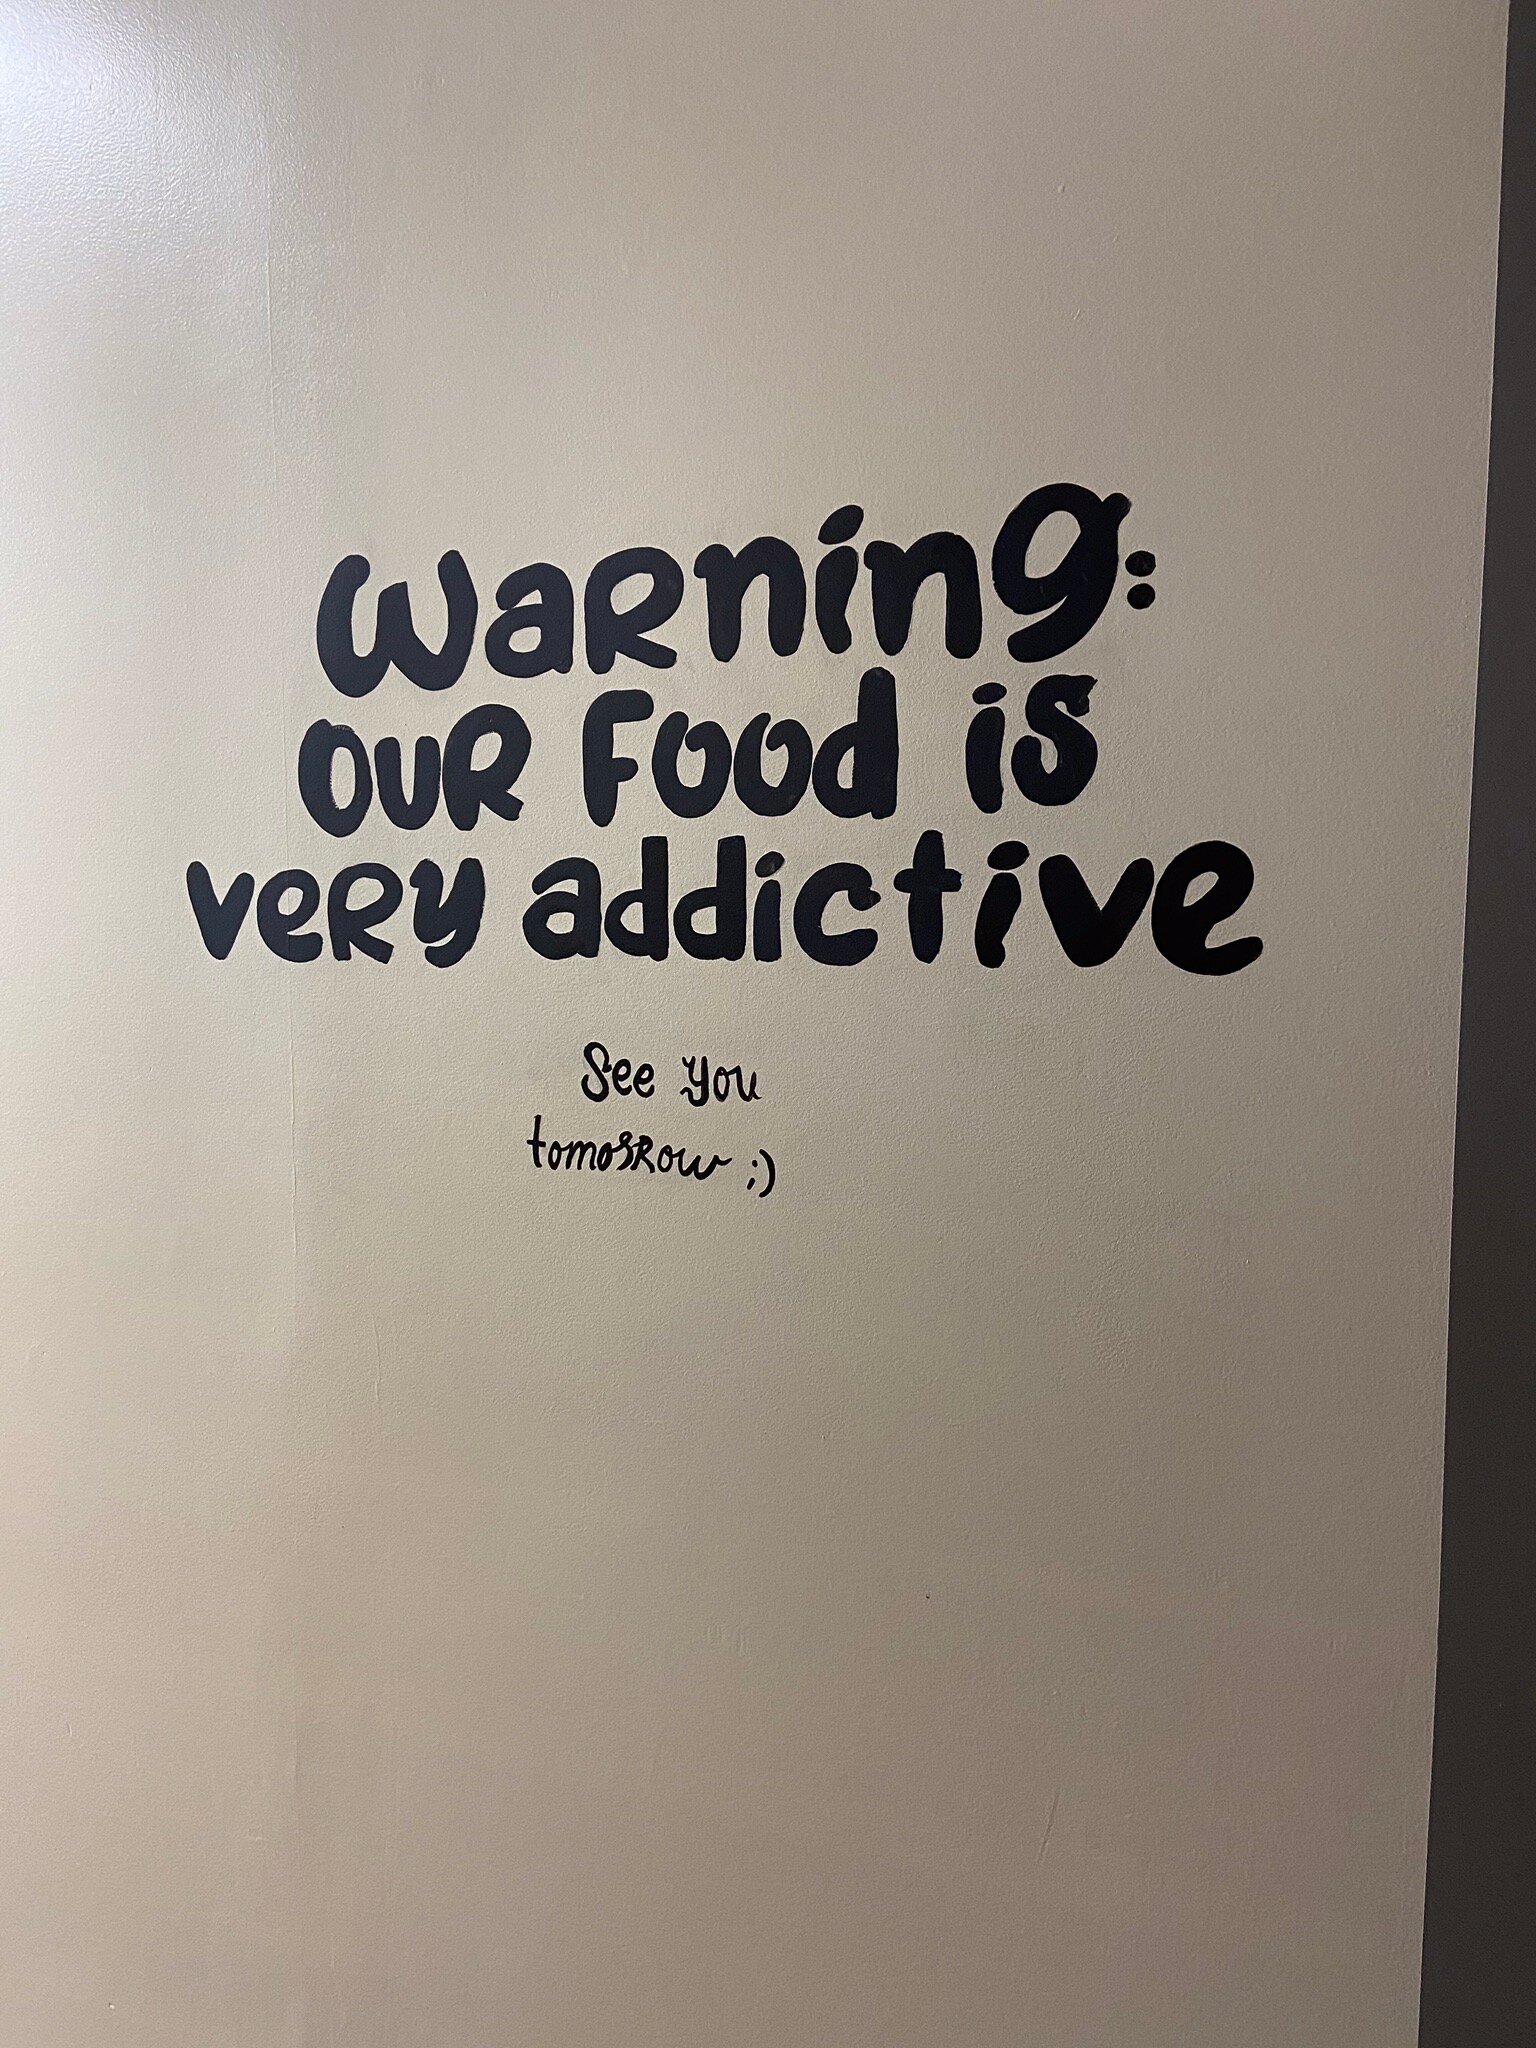 Warning:
OUR Food is
very addictive
See you
tomorrow ;)